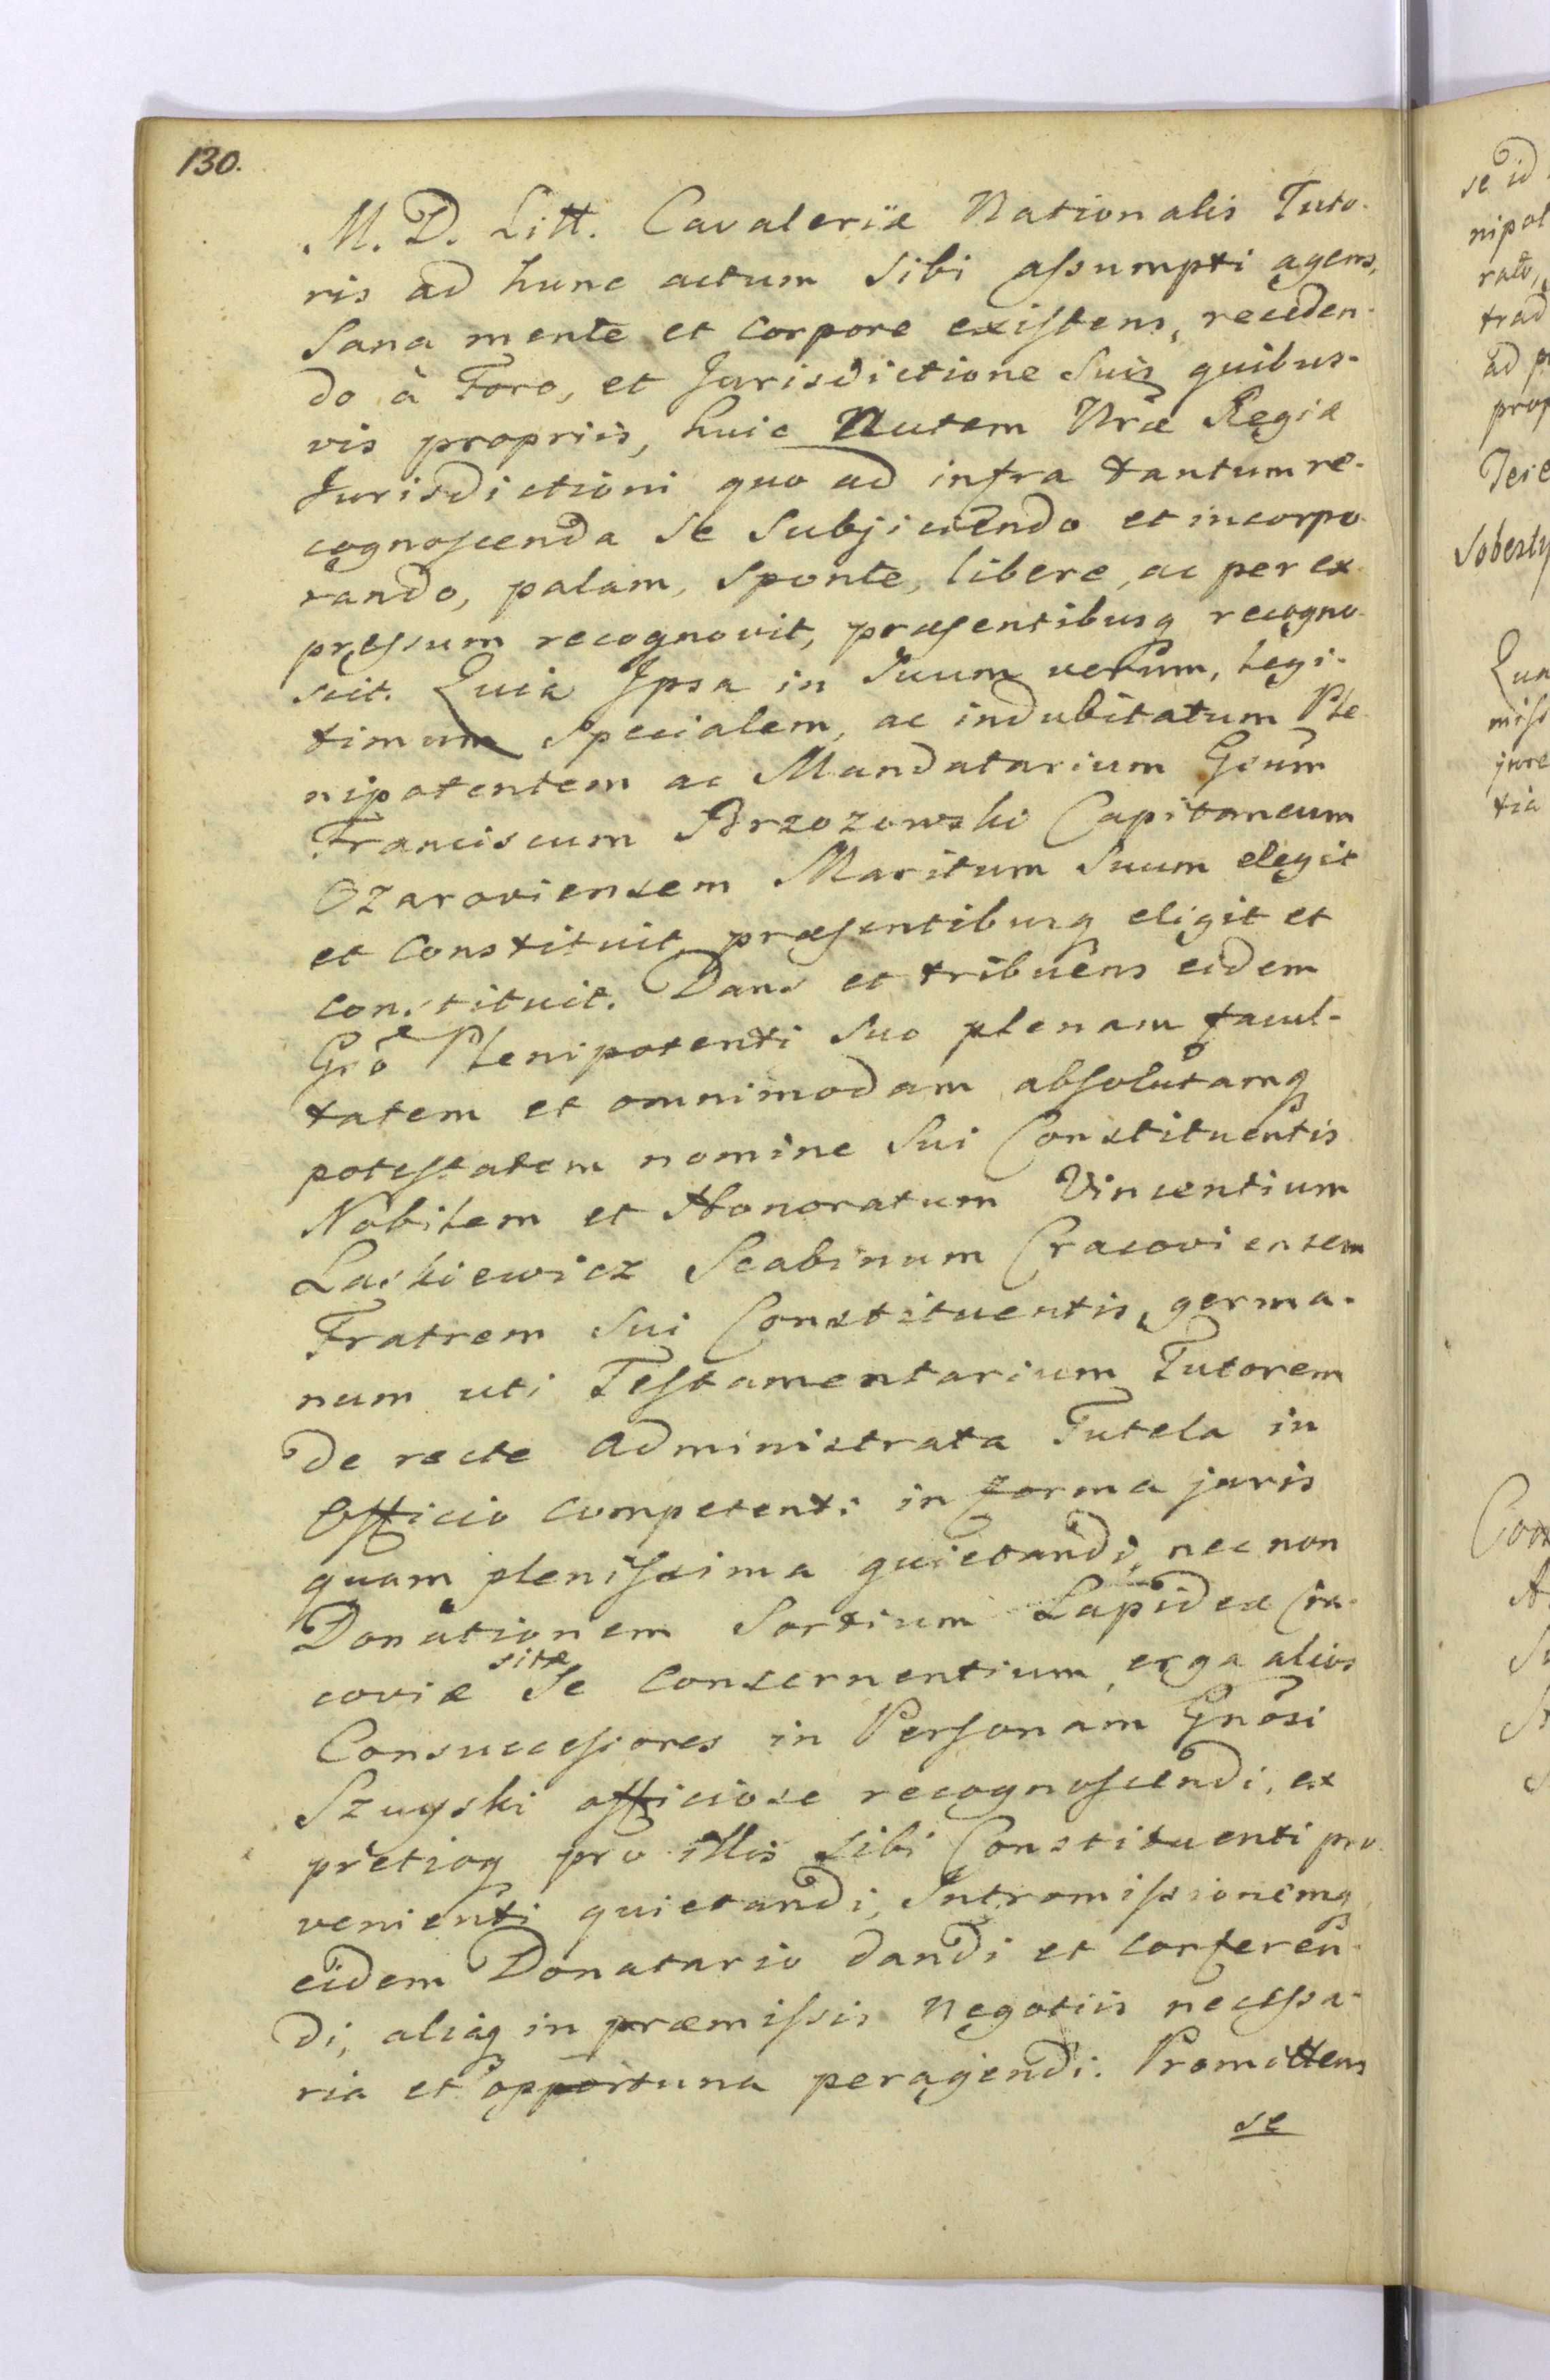 130.
M. D. Litt. Cavaleriæ Nationalis Tuto-
ris ad hunc actum sibi assumpti agens,
Sana mente et corpore existens, receden-
do à Foro, et Jurisdictione suis quibus-
vis propriis, huic autem Nrae Regiæ
Jurisdictioni quo ad infra tantum re-
cognoscenda se subjiciendo et incorpo-
rando, palam, sponte, libere, ac per ex-
pressum recognovit, præsentibusq recogno-
scit. Quia Ipsa in suum verum, legi-
timum specialem, ac indubitatum Ple-
nipotentem ac Mandatarium Gsum
Franciscum Brzozowski Capitaneum
Ozaroviensem Maritum suum elegit
et constituit, præsentibusq eligit et
constituit. Dans et tribuens eidem
Gso Plenipotenti suo plenam facul-
tatem et omnimodam absolutamq
potestatem nomine sui Constituentis
Nobilem et Honoratum Vincentium
Laskiewicz Scabinum Cracoviensem
Fratrem sui Constituentis germa-
num uti Testamentarium Tutorem
de recte administrata Tutela in
Officio competenti in forma juris
quam plenissima quietandi, nec non
Donationem Sortium Lapideæ Cra-
coviæ sitæ Se concernentium, erga alios
Consuccessores in Personam Gnosi
Szuyski officiose recognoscendi, ex
pretioq pro illis sibi Constituenti pro-
venienti quietandi, Intromissionemq
eidem Donatario dandi et conferen-
di, aliaq in præmissis negotiis necessa-
ria et opportuna peragendi. Promittens
se